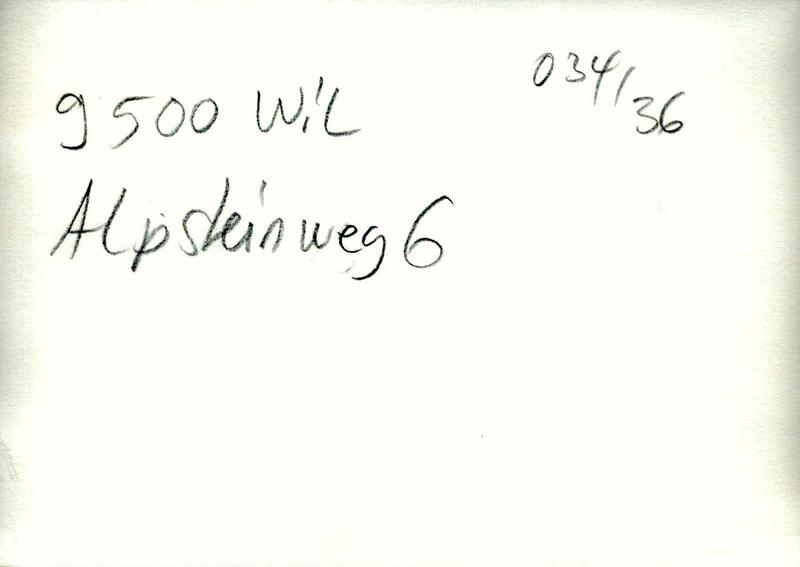 9500 Wil
034/36
Alpsteinweg 6